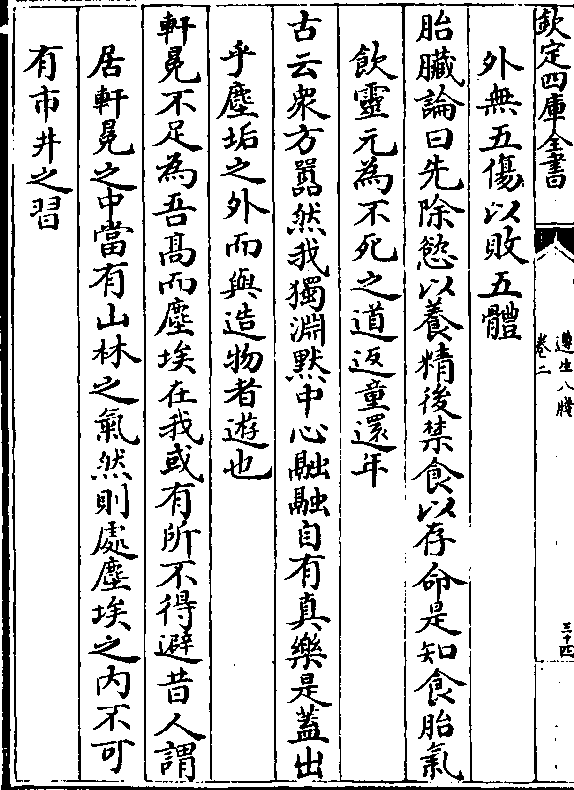 欽定四庫全書
遵生八牋
卷二
三十四
外無五傷以敗五體
胎臟論曰先除慾以養精後禁食以存命是知食胎氣
飲靈元為不死之道返童還年
古云衆方嚣然我獨淵黙中心融融自有真樂是蓋出
乎塵垢之外而與造物者遊也
軒冕不足為吾髙而塵埃在我或有所不得避昔人謂
居軒冕之中當有山林之氣然則處塵埃之内不可
有市井之習